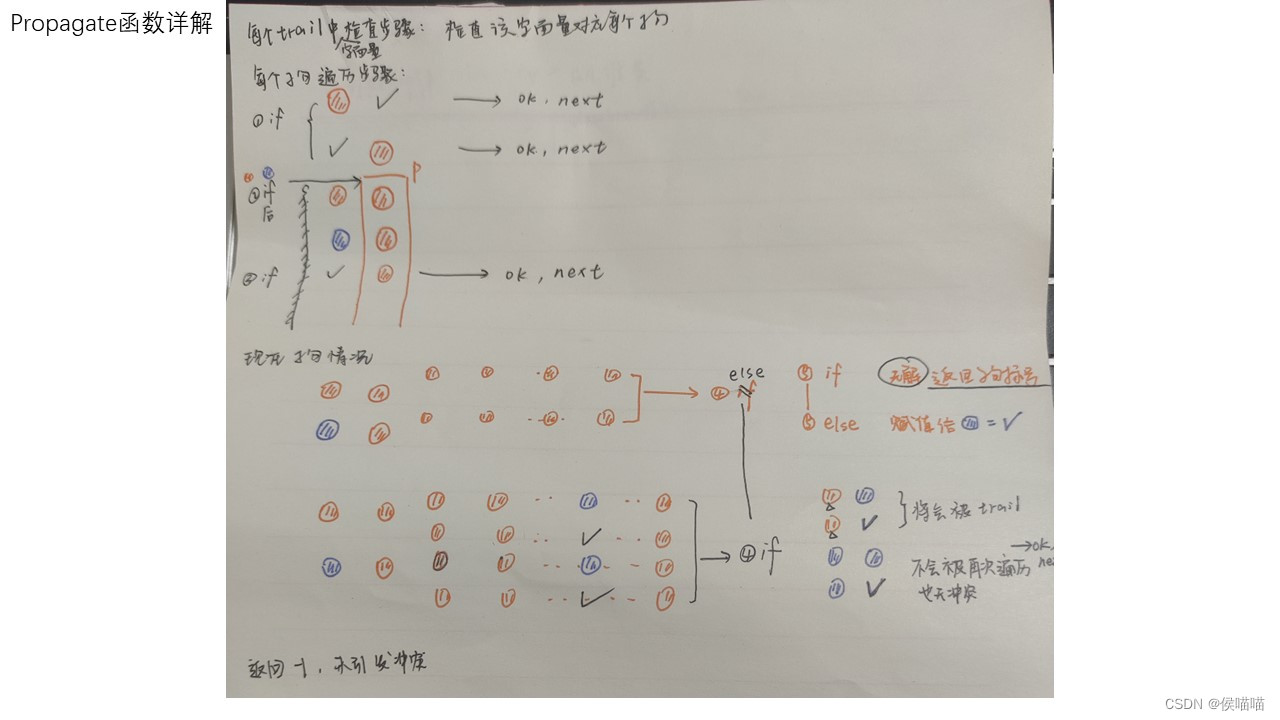 Propagate函数详解
每个trail中检查步骤： 检查该字面量对应每个子句
字面量
每个子句遍历步骤：
① if ✓ → ok, next
✓ → ok, next
P
② if
后
② if ✓ → ok, next
现在子句情况
else
④ if
⑤ if 无解 返回子句标号
⑤ else 赋值给 = ✓
④ if
✓
✓
✓ 将会被 trail
✓ 不会被再次遍历 → ok,
也无冲突
返回 -1, 未引发冲突
CSDN @侯喵喵